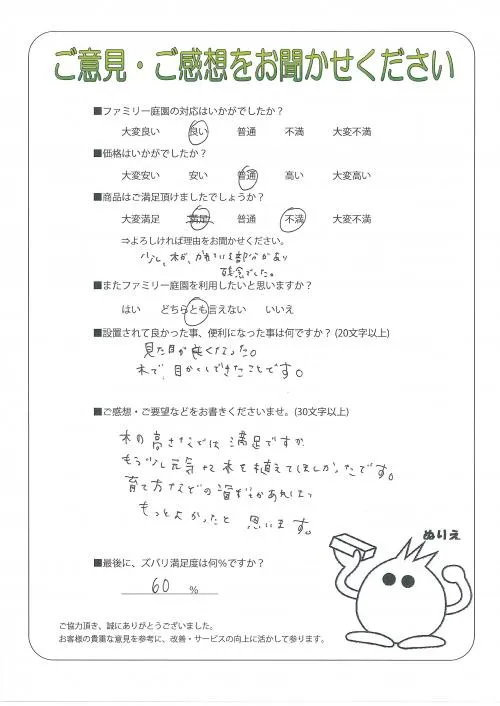 ご意見・ご感想をお聞かせください
■ファミリー庭園の対応はいかがでしたか？
大変良い 良い 普通 不満 大変不満
■価格はいかがでしたか？
大変安い 安い 普通 高い 大変高い
■商品はご満足頂けましたでしょうか？
大変満足 満足 普通 不満 大変不満
⇒よろしければ理由をお聞かせください。
少し、木が、かれている部分があり
残念でした。
■またファミリー庭園を利用したいと思いますか？
はい どちらとも言えない いいえ
■設置されて良かった事、便利になった事は何ですか？(20文字以上)
見た目が良くなった。
木で、目かくしできたことです。
■ご感想・ご要望などをお書きくださいませ。(30文字以上)
木の高さなどは満足ですが、
もう少し元気な木を植えてほしかったです。
育て方などの資料があれば、
もっとよかったと思います。
ぬりえ
■最後に、ズバリ満足度は何％ですか？
60 %
ご協力頂き、誠にありがとうございました。
お客様の貴重な意見を参考に、改善・サービスの向上に活かして参ります。